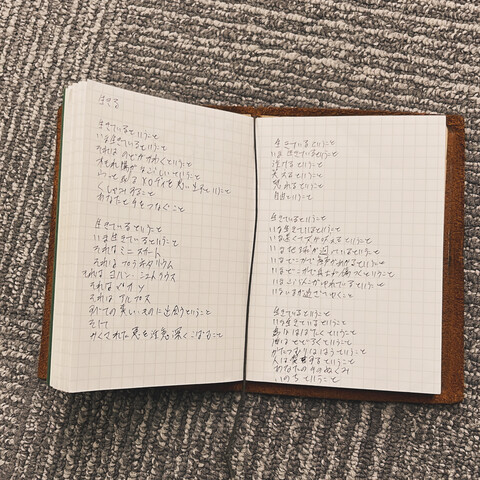 生きる
生きているということ
いま生きているということ
それはのどがかわくということ
木もれ陽がまぶしいということ
ふっと或るメロディを思い出すということ
くしゃみすること
あなたと手をつなぐこと
生きているということ
いま生きているということ
それはミニスカート
それはプラネタリウム
それはヨハン・シュトラウス
それはピカソ
それはアルプス
すべての美しいものに出会うということ
そして
かくされた悪を注意深くこばむこと
生きているということ
いま生きているということ
泣けるということ
笑えるということ
怒れるということ
自由ということ
生きているということ
いま生きているということ
いま遠くで犬が吠えるということ
いま地球が廻っているということ
いまどこかで産声があがるということ
いまどこかで兵士が傷つくということ
いまぶらんこがゆれているということ
いまいまが過ぎてゆくこと
生きているということ
いま生きているということ
鳥ははばたくということ
海はとどろくということ
かたつむりははうということ
人は愛するということ
あなたの手のぬくみ
いのちということ